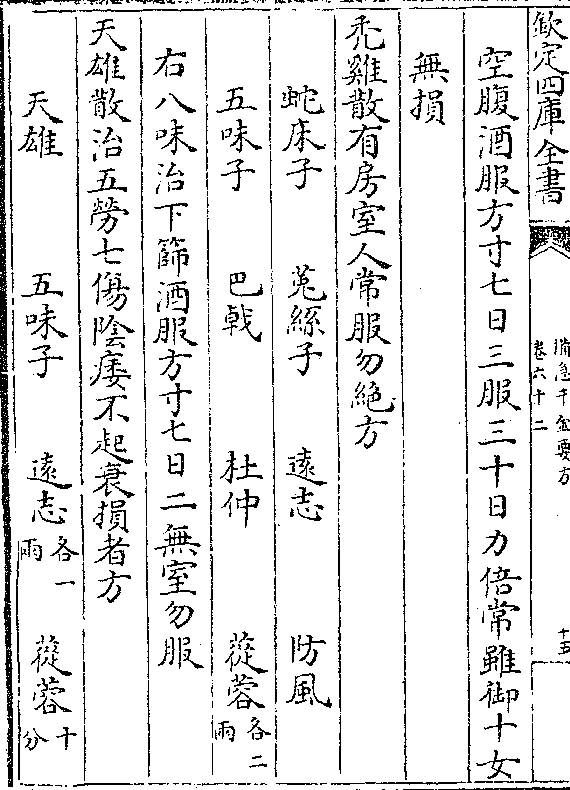 欽定四庫全書
備急千金要方
卷六十二
十五
空腹酒服方寸七日三服三十日力倍常雖御十女
無損
禿雞散有房室人常服勿絶方
蛇床子 莵絲子 遠志 防風
五味子 巴戟 杜仲 蓯蓉各二兩
右八味治下篩酒服方寸七日二無室勿服
天雄散治五勞七傷陰痿不起衰損者方
天雄 五味子 遠志各一兩 蓯蓉十分